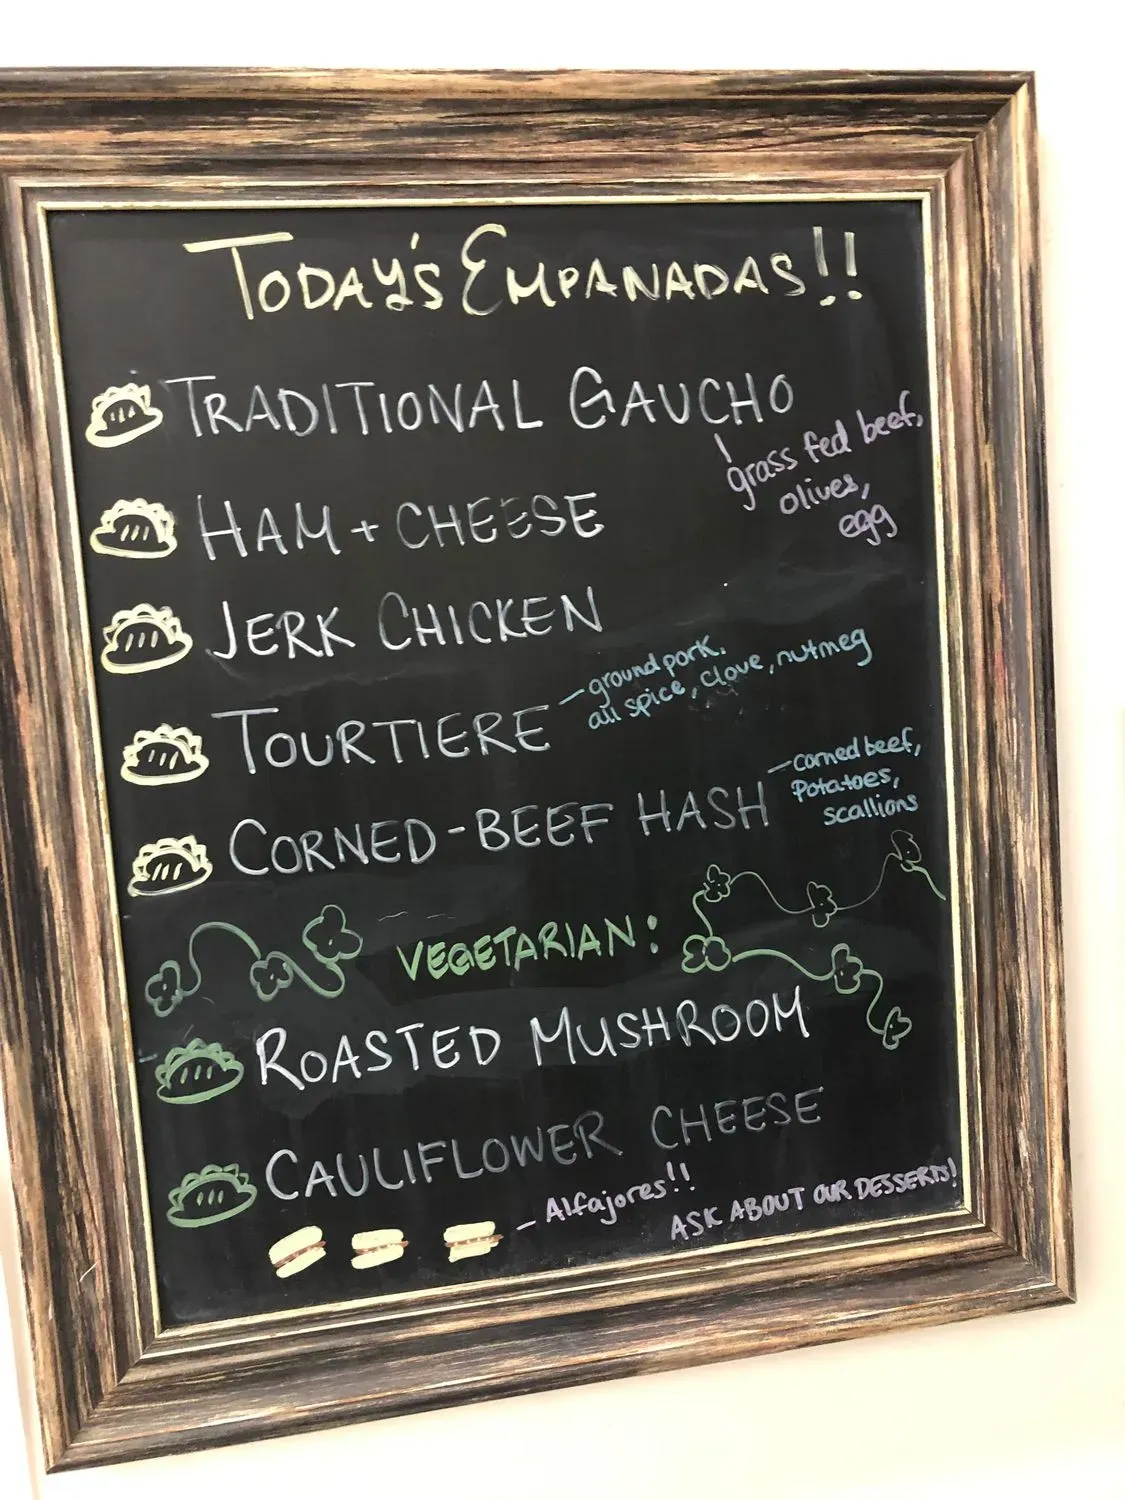 TODAY'S EMPANADAS!!
TRADITIONAL GAUCHO
grass fed beef,
olives,
egg
HAM + CHEESE
JERK CHICKEN
TOURTIERE
– ground pork,
all spice, clove, nutmeg
CORNED-BEEF HASH
– corned beef,
Potatoes,
scallions
VEGETARIAN:
ROASTED MUSHROOM
CAULIFLOWER CHEESE
– Alfajores!!
ASK ABOUT OUR DESSERTS!